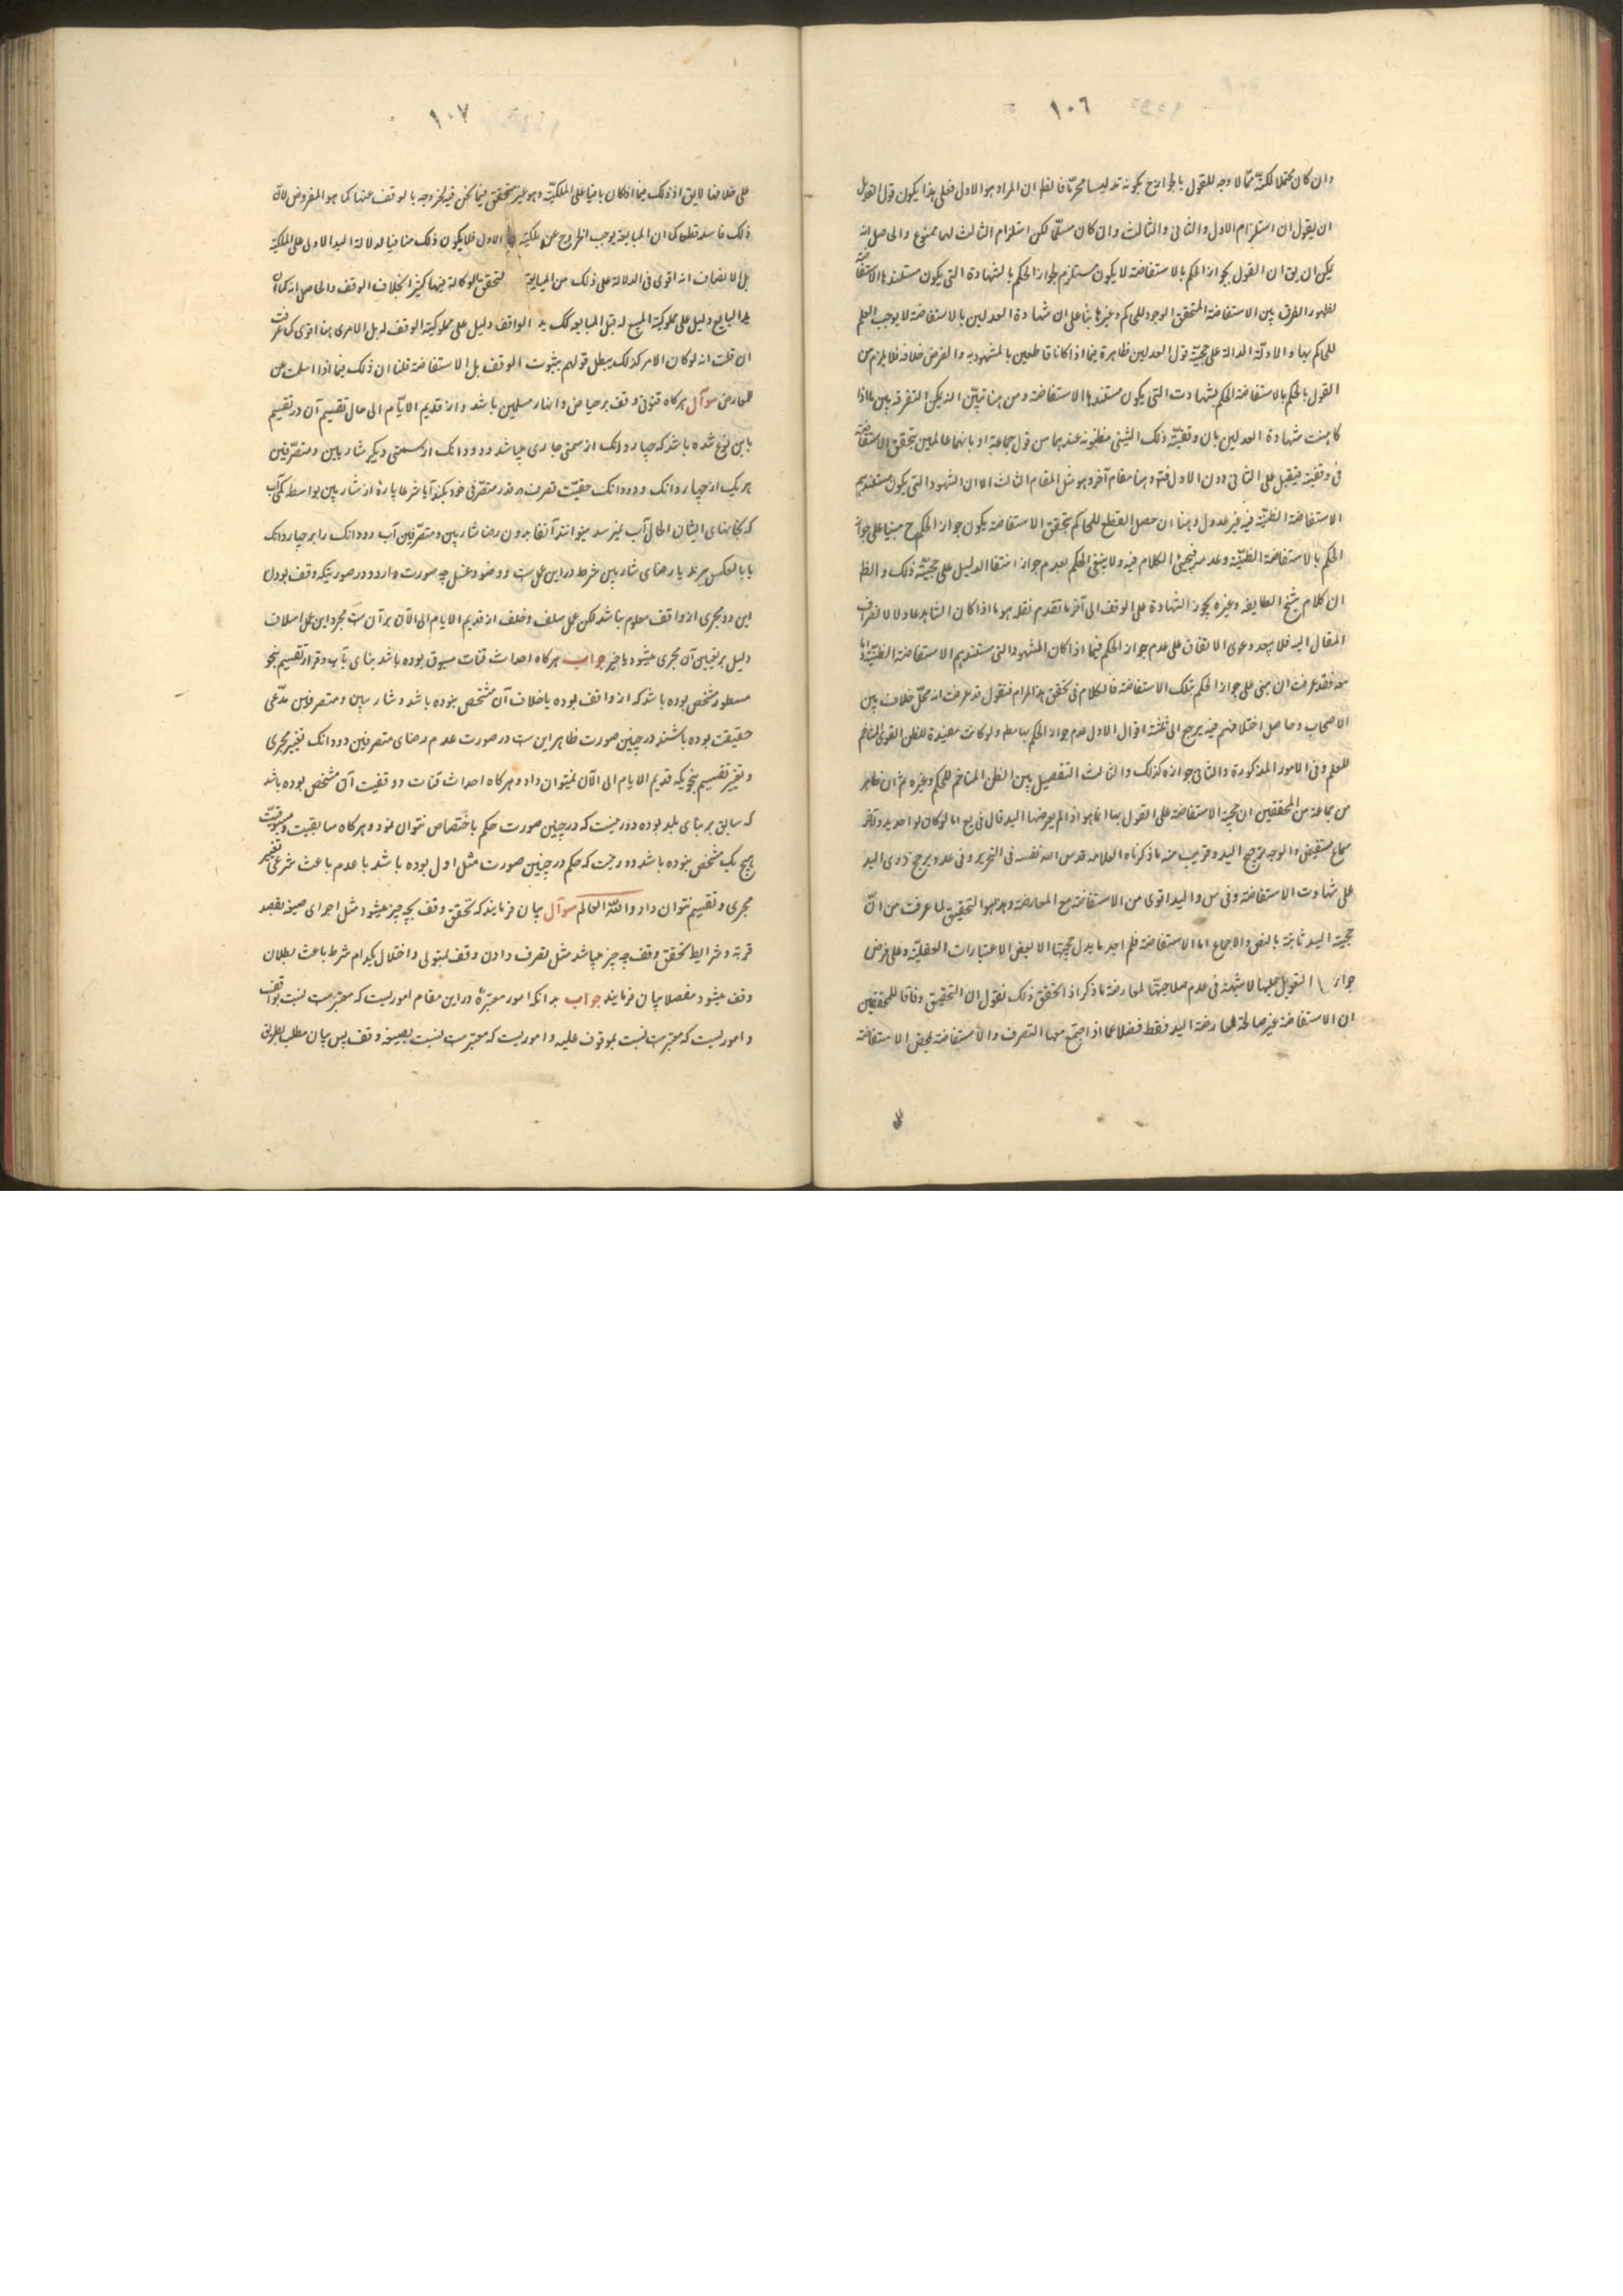 ١٠٦
وان كان محتملا لكنه مما لا وجه للقول بالجواز ح بكونه تدليسا محرّما فالظ ان المراد هو الاول فعلى هذا يكون قول
ان يقول ان استلزام الاول والثانى والثالث وان كان مسلّما لكن استلزام الثالث لهما ممنوع والحاصل انه
يمكن ان يق ان القول بجواز الحكم بالاستفاضة لا يكون مستلزم لجواز الحكم بالشهادة التى يكون مستندها الاستفاضة
لظهور الفرق بين الاستفاضة المتحقق الوجود للحاكم وغيرها بناء على ان شهادة العدلين بالاستفاضة لا يوجب العلم
للحاكم بها والادلّة الدالة على حجيّة قول العدلين ظاهرة فيما اذا كانا قاطعين بالمشهود به والفرض خلافه فلا يلزم من
القول بالحكم بالاستفاضة الحكم بشهادت التى يكون مستندها الاستفاضة ومن هنا تبيّن انه يمكن التفرقة بين ما اذا
كانت شهادة العدلين بان وقفيّة ذلك الشيئ مظنونه عندهما من قول جماعة او بانهما عالمين بتحقق الاستفاضة
فى وقفيّته فيقبل على الثانى دون الاول فتم وهنا مقام آخر وهو مثل المقام الثالث الا ان الشهود التى يكون مستنديهم
الاستفاضة الظنيّة فيه غير عدول وهنا ان حصل القطع للحاكم بتحقق الاستفاضة يكون جواز الحكم ح مبنيا على جواز
الحكم بالاستفاضة الظنيّة وعدمه فيجيئ الكلام فيه ولا ينبغى الحكم بعدم جواز انتفا الدليل على حجيّة ذلك والظ
ان كلام شيخ الطايفه وغيره يجوز الشهادة على الوقف الى آخر ما تقدم نقله هو ما اذا كان الشاهد عادلا لانصراف
المقال اليه فلا يبعد دعوى الاتفاق على عدم جواز الحكم فيما اذا كان الشهود التى مستنديهم الاستفاضة الظنيّة
فقد عرفت ان مبنى على جواز الحكم بتلك الاستفاضة فالكلام فى تحقق هذا المرام فنقول قد عرفت انه محلّ خلاف بين
الاصحاب وحاصل اختلافهم فيه يرجع الى ثلثة اقوال الاول عدم جواز الحكم بها مطم ولو كانت مفيدة للظن القوى المتاخم
للعلم وفى الامور المذكورة والثانى جوازه كذلك والثالث التفصيل بين الظن المتاخم للحكم وغيره ثم ان ظاهر
من جماعة من المحققين ان حجيّة الاستفاضة على القول بها انما هو اذا لم يعارضها اليد قال فى يع اما لو كان لواحد يد ولآخر
سماع مستفيض والوجه ترجيح اليد وقريب منه ما ذكرناه العلامه قدس الله نفسه فى التحرير وفى عد ويرجح ذوى اليد
على شهادت الاستفاضة وفى س واليد اقوى من الاستفاضة مع المعارضة وهذا هو التحقيق لما عرفت من انّ
حجيّة اليد ثابتة بالنص والاجماع اما الاستفاضة فلم اجد ما يدل بحجيتها الا بعض الاعتبارات العقليّة وعلى فرض
جواز التعويل عليها لا شبهة فى عدم صلاحيتها لمعارضة ما ذكر اذا تحقق ذلك نقول ان التحقيق وفاقا للمحققين
ان الاستفاضة غير صالحة لمعارضة اليد فقط فضلا عما اذا اجتمع معها التصرف والاستفاضة لمحض الاستفاضة
١٠٧
على خلافها لا يق اذ ذلك فيما اذا كان باقيا على الملكيّة وهو غير متحقق فيما نحن فيه لخروجه بالوقف عنها كما هو المفروض لانّ
ذلك فاسد قطعا كما ان المبايعة يوجب الخروج عن ملكيّة الاول فلا يكون ذلك منافيا لدلالة اليد الاولى على الملكيّة
بل الانصاف انه اقوى فى الدلالة على ذلك من المبايعة لتحقق الوكالة فيها كثيرا بخلاف الوقف والحاصل انه كما ان
يد البايع دليل على مملوكيّة المبيع له قبل المبايعه كك يد الواقف دليل على مملوكيّة الوقف له بل الامرى هنا اقوى كما عرفت
ان قلت انه لو كان الامر كذلك يبطل قولهم بثبوت الوقف بل الاستفاضة قلنا ان ذلك فيما اذا سلمت عن
المعارض سوآل هركاه قنوتى وقف بر حياض وانهار مسلمين باشد واز قديم الايّام الى حال تقسيم آن در تقسيم
باين نوع شده باشد كه چهار دانك از سمتى جارى ميباشد ودودانك از سمتى ديكر شاربين ومتصرّفين
هريك از چهار دانك ودودانك حقيّت تصرف در قدر متصرّفى خود ميكنند آيا شرعا پارۀ از شاربين بواسطه كمى آب
كه بجاهاى ايشان الحال آب نميرسد ميتوانند آنقا بدون رضا شاربين ومتصرّفين آب دودانك را بر چهار دانك
يا بالعكس ببرند يا رضاى شاربين شرط در اين عمل ست ووضو وغسل چه صورت دارد ودر صورتيكه وقف بودن
اين دو مجرى از واقف معلوم نباشد لكن عمل سلف وخلف از قديم الايام الى الآن بر آن ست مجرد اين عمل اسلاف
دليل بر تعيين آن مجرى ميشود يا خير جواب هركاه احداث قنات مسبوق بوده باشد بناى بآب وقرار تقسيم بنحو
مسطور مشخص بوده باشد كه از واقف بوده يا خلاف آن مشخص نبوده باشد وشاربين ومتصرفين مدّعى
حقيقت بوده باشند در چنين صورت ظاهر اين ست در صورت عدم رضاى متصرفين دودانك تغيير مجرى
وتغيير تقسيم بنحويكه قديم الايام الى الآن نميتوان داد وهركاه احداث قنات ووقفيت آن مشخص بوده باشد
كه سابق بر بناى بلد بوده در چنين صورت حكم باختصاص نتوان نمود وهركاه سابقيت ومسبوقيت
هيچ يك مشخص نبوده باشد حكم در چنين صورت مثل اول بوده باشد با عدم باعث شرعى تغيير
مجرى وتقسيم نتوان داد والله العالم سوآل بيان فرمايند كه تحقق وقف بچه چيز ميشود مثل اجراى صيغه بقصد
قربة وشرايط تحقق وقف چه چيز ميباشد مثل تصرف دادن وقف بمتولى واختلال بكدام شرط باعث بطلان
وقف ميشود مفصلا بيان فرمايند جواب بدانكه امور معتبرۀ در اين مقام اموريست كه معتبرست نسبت بواقف
واموريست كه معتبرست نسبت بموقوف عليه واموريست كه معتبرست نسبت بصيغه وقف پس بيان مطلب بطريق